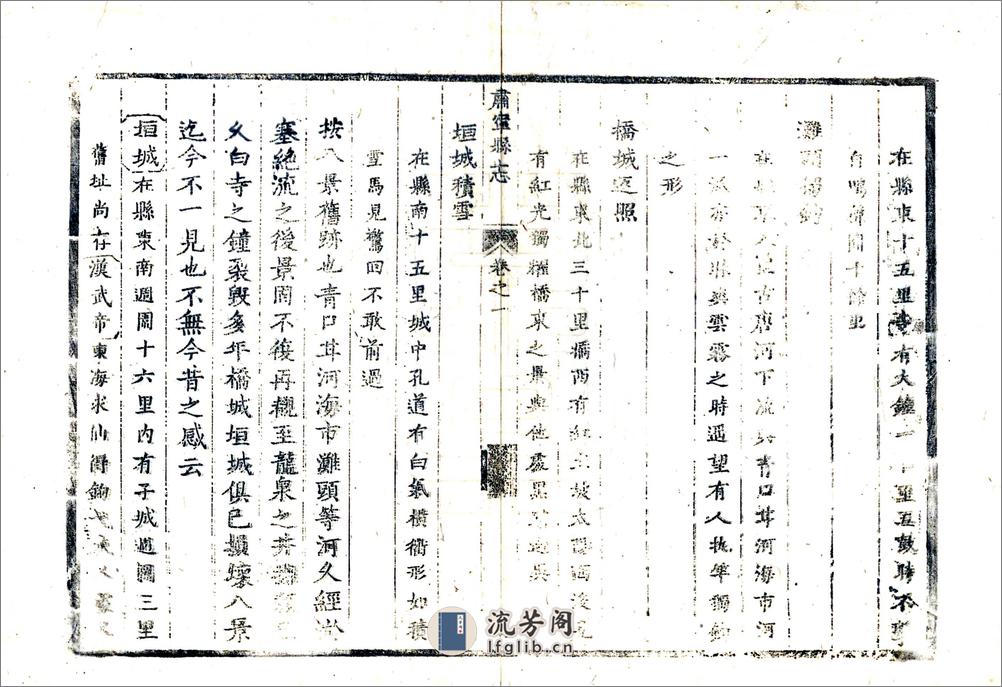 在縣東十五里寺有大鐘一 至五鼓時不
自鳴聲聞十餘里
灘頭
在 古唐河下流與青口茸河海市河
一 雲霧之時遥望有人執竿獨釣
之形
橋城返照
在縣東北三十里橋西有紅土坡太陽西
有紅光獨耀橋東之景與他處
肅寧縣志
卷之一
垣城積雪
在縣南十五里城中孔道有白氣橫衢形如積
雪馬見驚回不敢前過
按八景舊跡也青口茸河海市灘頭等河久經淤
塞絶流之後景罔不復再覩至龍泉之井
久白寺之鐘裂毀多年橋城垣城俱已損壞八景
迄今不一見也不無今昔之感云
垣城在縣東南週圍十六里内有子城週圍三里
舊址尚存漢武帝東海求仙得鉤
流芳阁
lfglib.cn